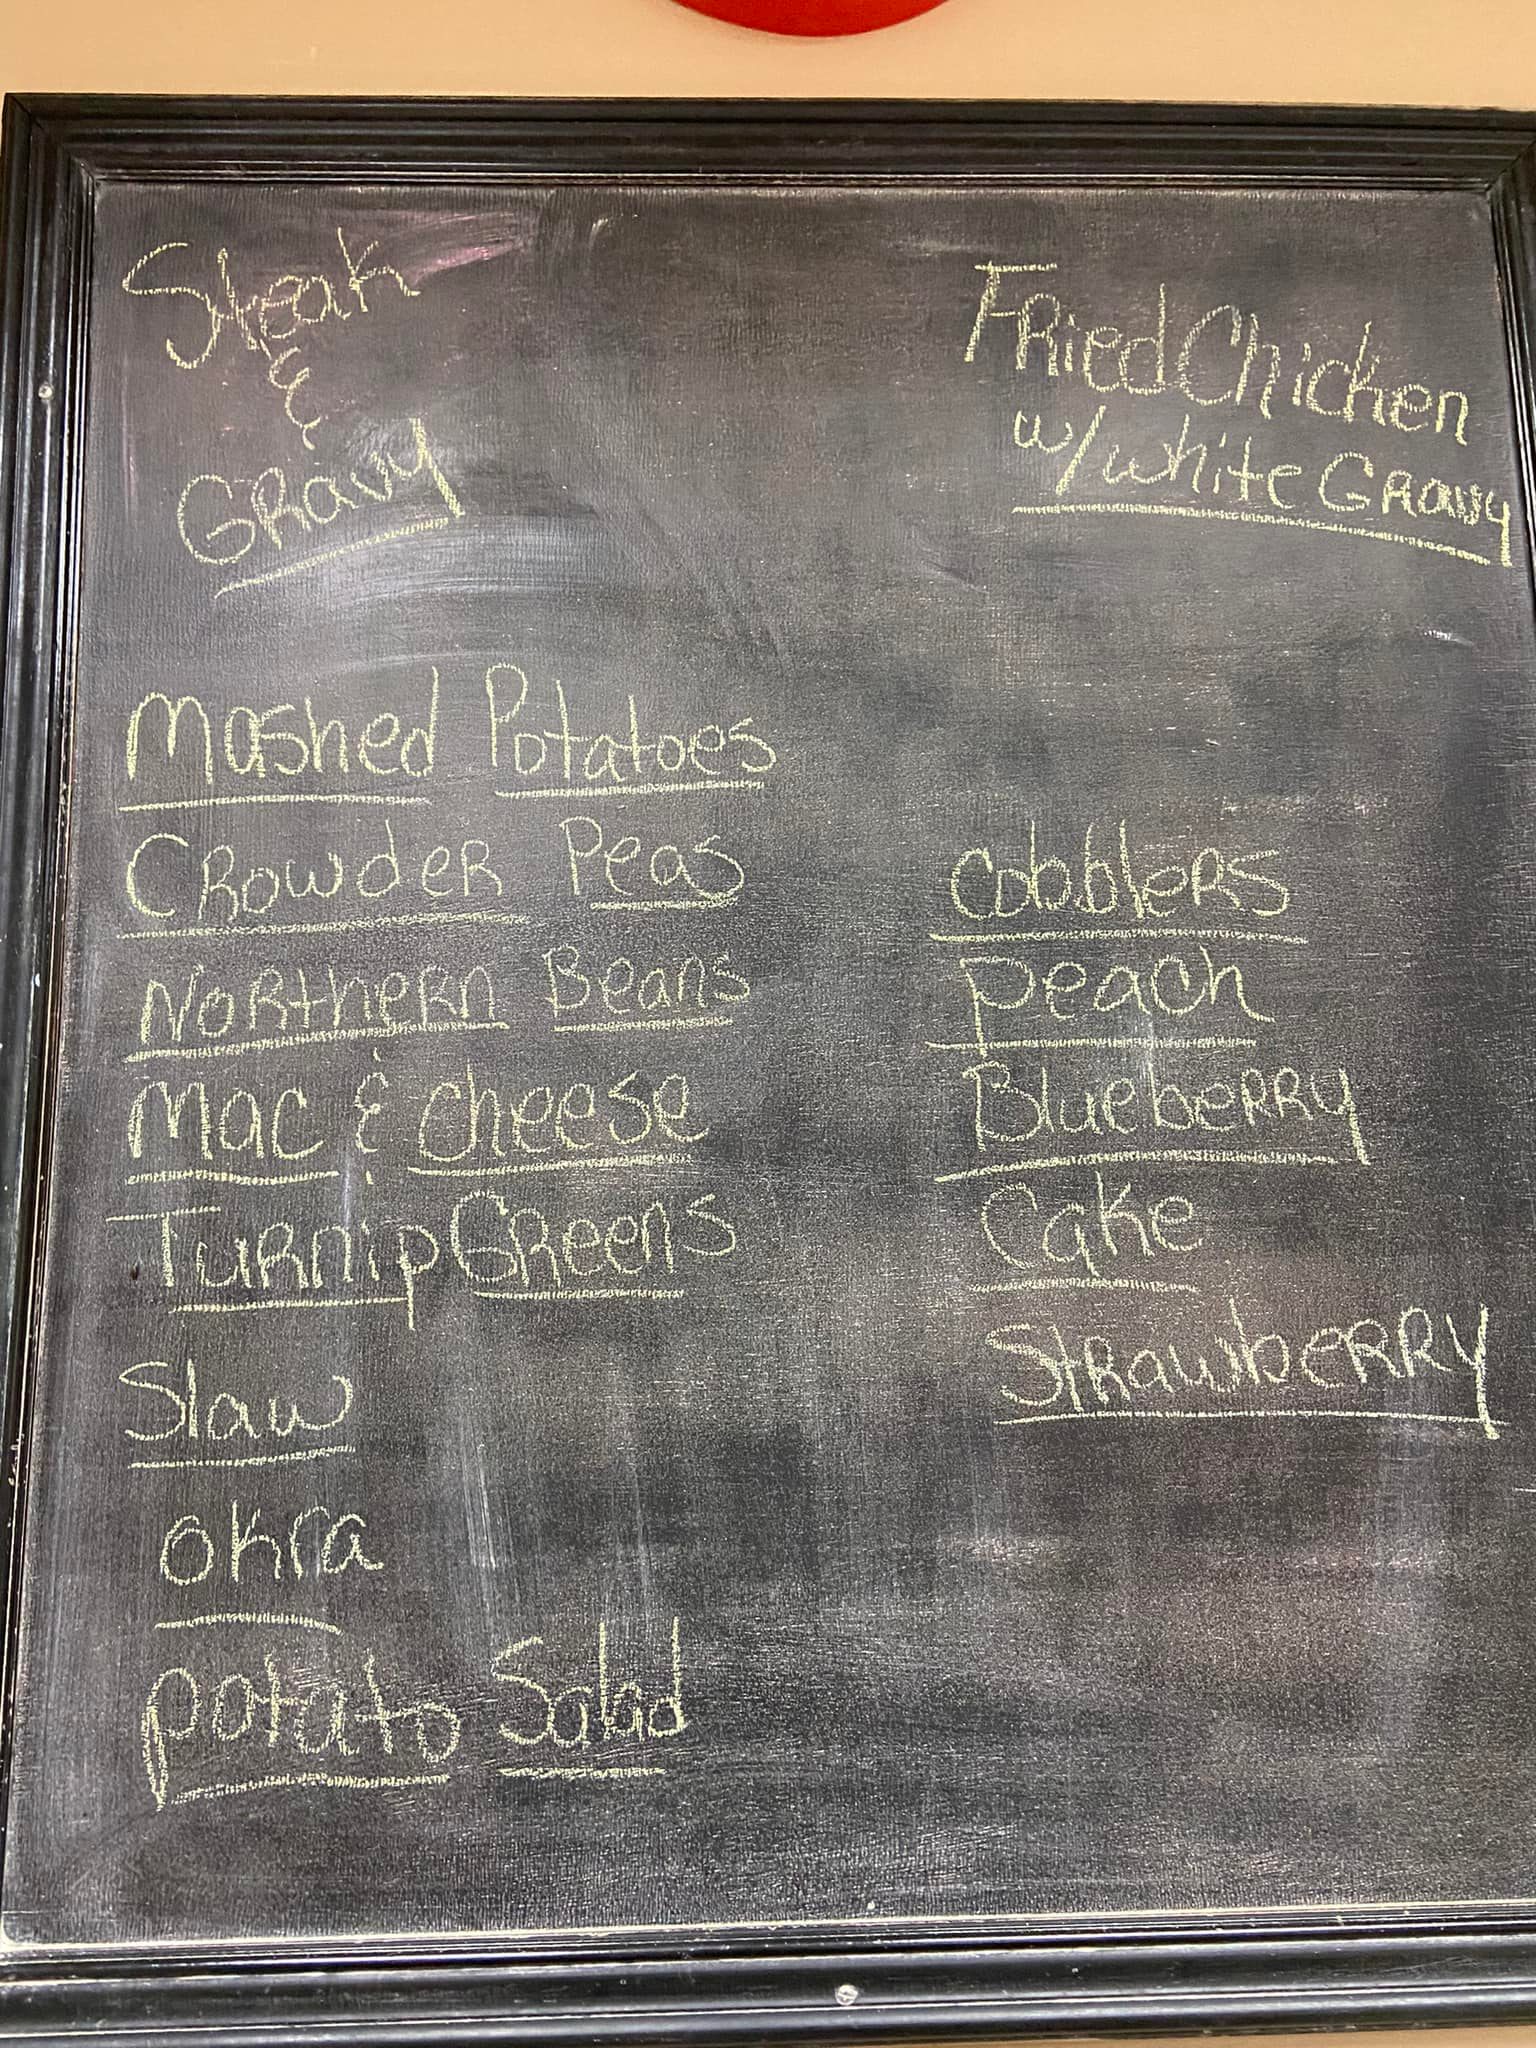 Steak
&
Gravy
Fried Chicken
w/ white Gravy
Mashed Potatoes
Crowder Peas
Northern Beans
Mac & cheese
Turnip Greens
Slaw
okra
potato Salad
Cobblers
peach
Blueberry
Cake
Strawberry